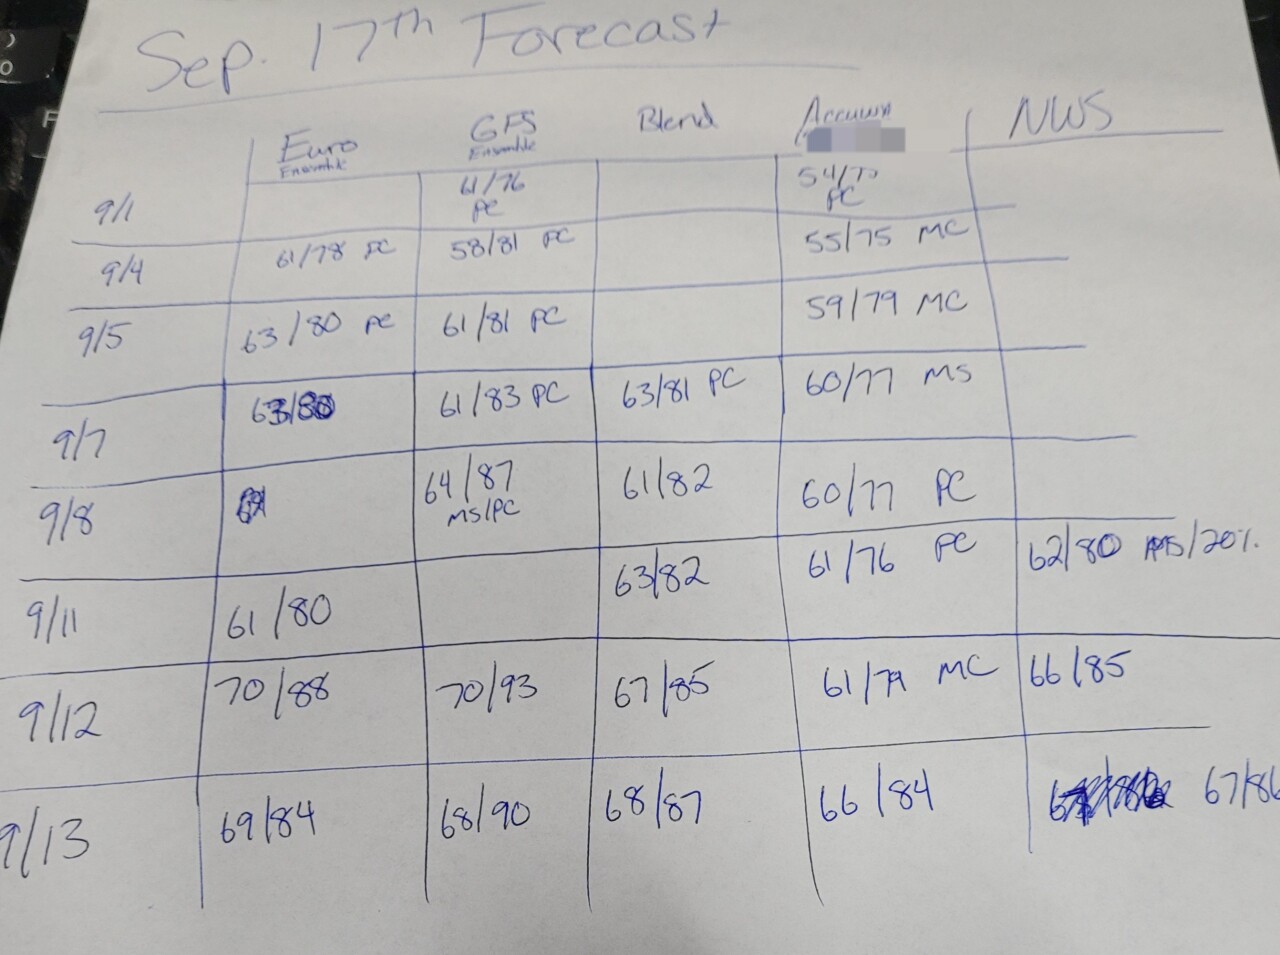 Sep. 17th Forecast
Euro GFS Blend Accuwx NWS
Ensemble Ensemble
9/1 61/76 54/75
PC PC
9/4 61/78 PC 58/81 PC 55/75 MC
9/5 63/80 PC 61/81 PC 59/79 MC
9/7 63/80 61/83 PC 63/81 PC 60/77 MS
9/8 64/87 61/82 60/77 PC
MS/PC
9/11 61/80 63/82 61/76 PC 62/80 MS/20%
9/12 70/88 70/93 67/85 61/79 MC 66/85
9/13 69/84 68/90 68/87 66/84 67/86